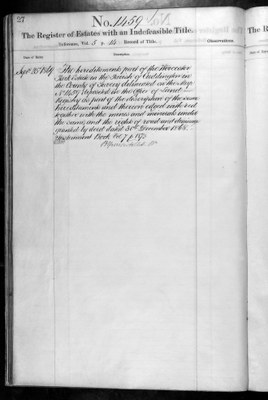 27
No. 1459
The Register of Estates with an Indefeasible Title.
Reference, Vol. 5 p. Record of Title.
Observations.
Date of Entry.
Description.
The hereditaments part of the Worcester
Park Estate in the Parish of Cuddington in
the County of Surrey delineated on the Map
No 1459 deposited in the Office of Land
Registry as part of the description of the same
hereditaments and thereon edged with red
together with the mines and minerals under
the same and the rights of road and drainage
granted by deed dated 30th December 1865
Instrument Book Vol 7 p